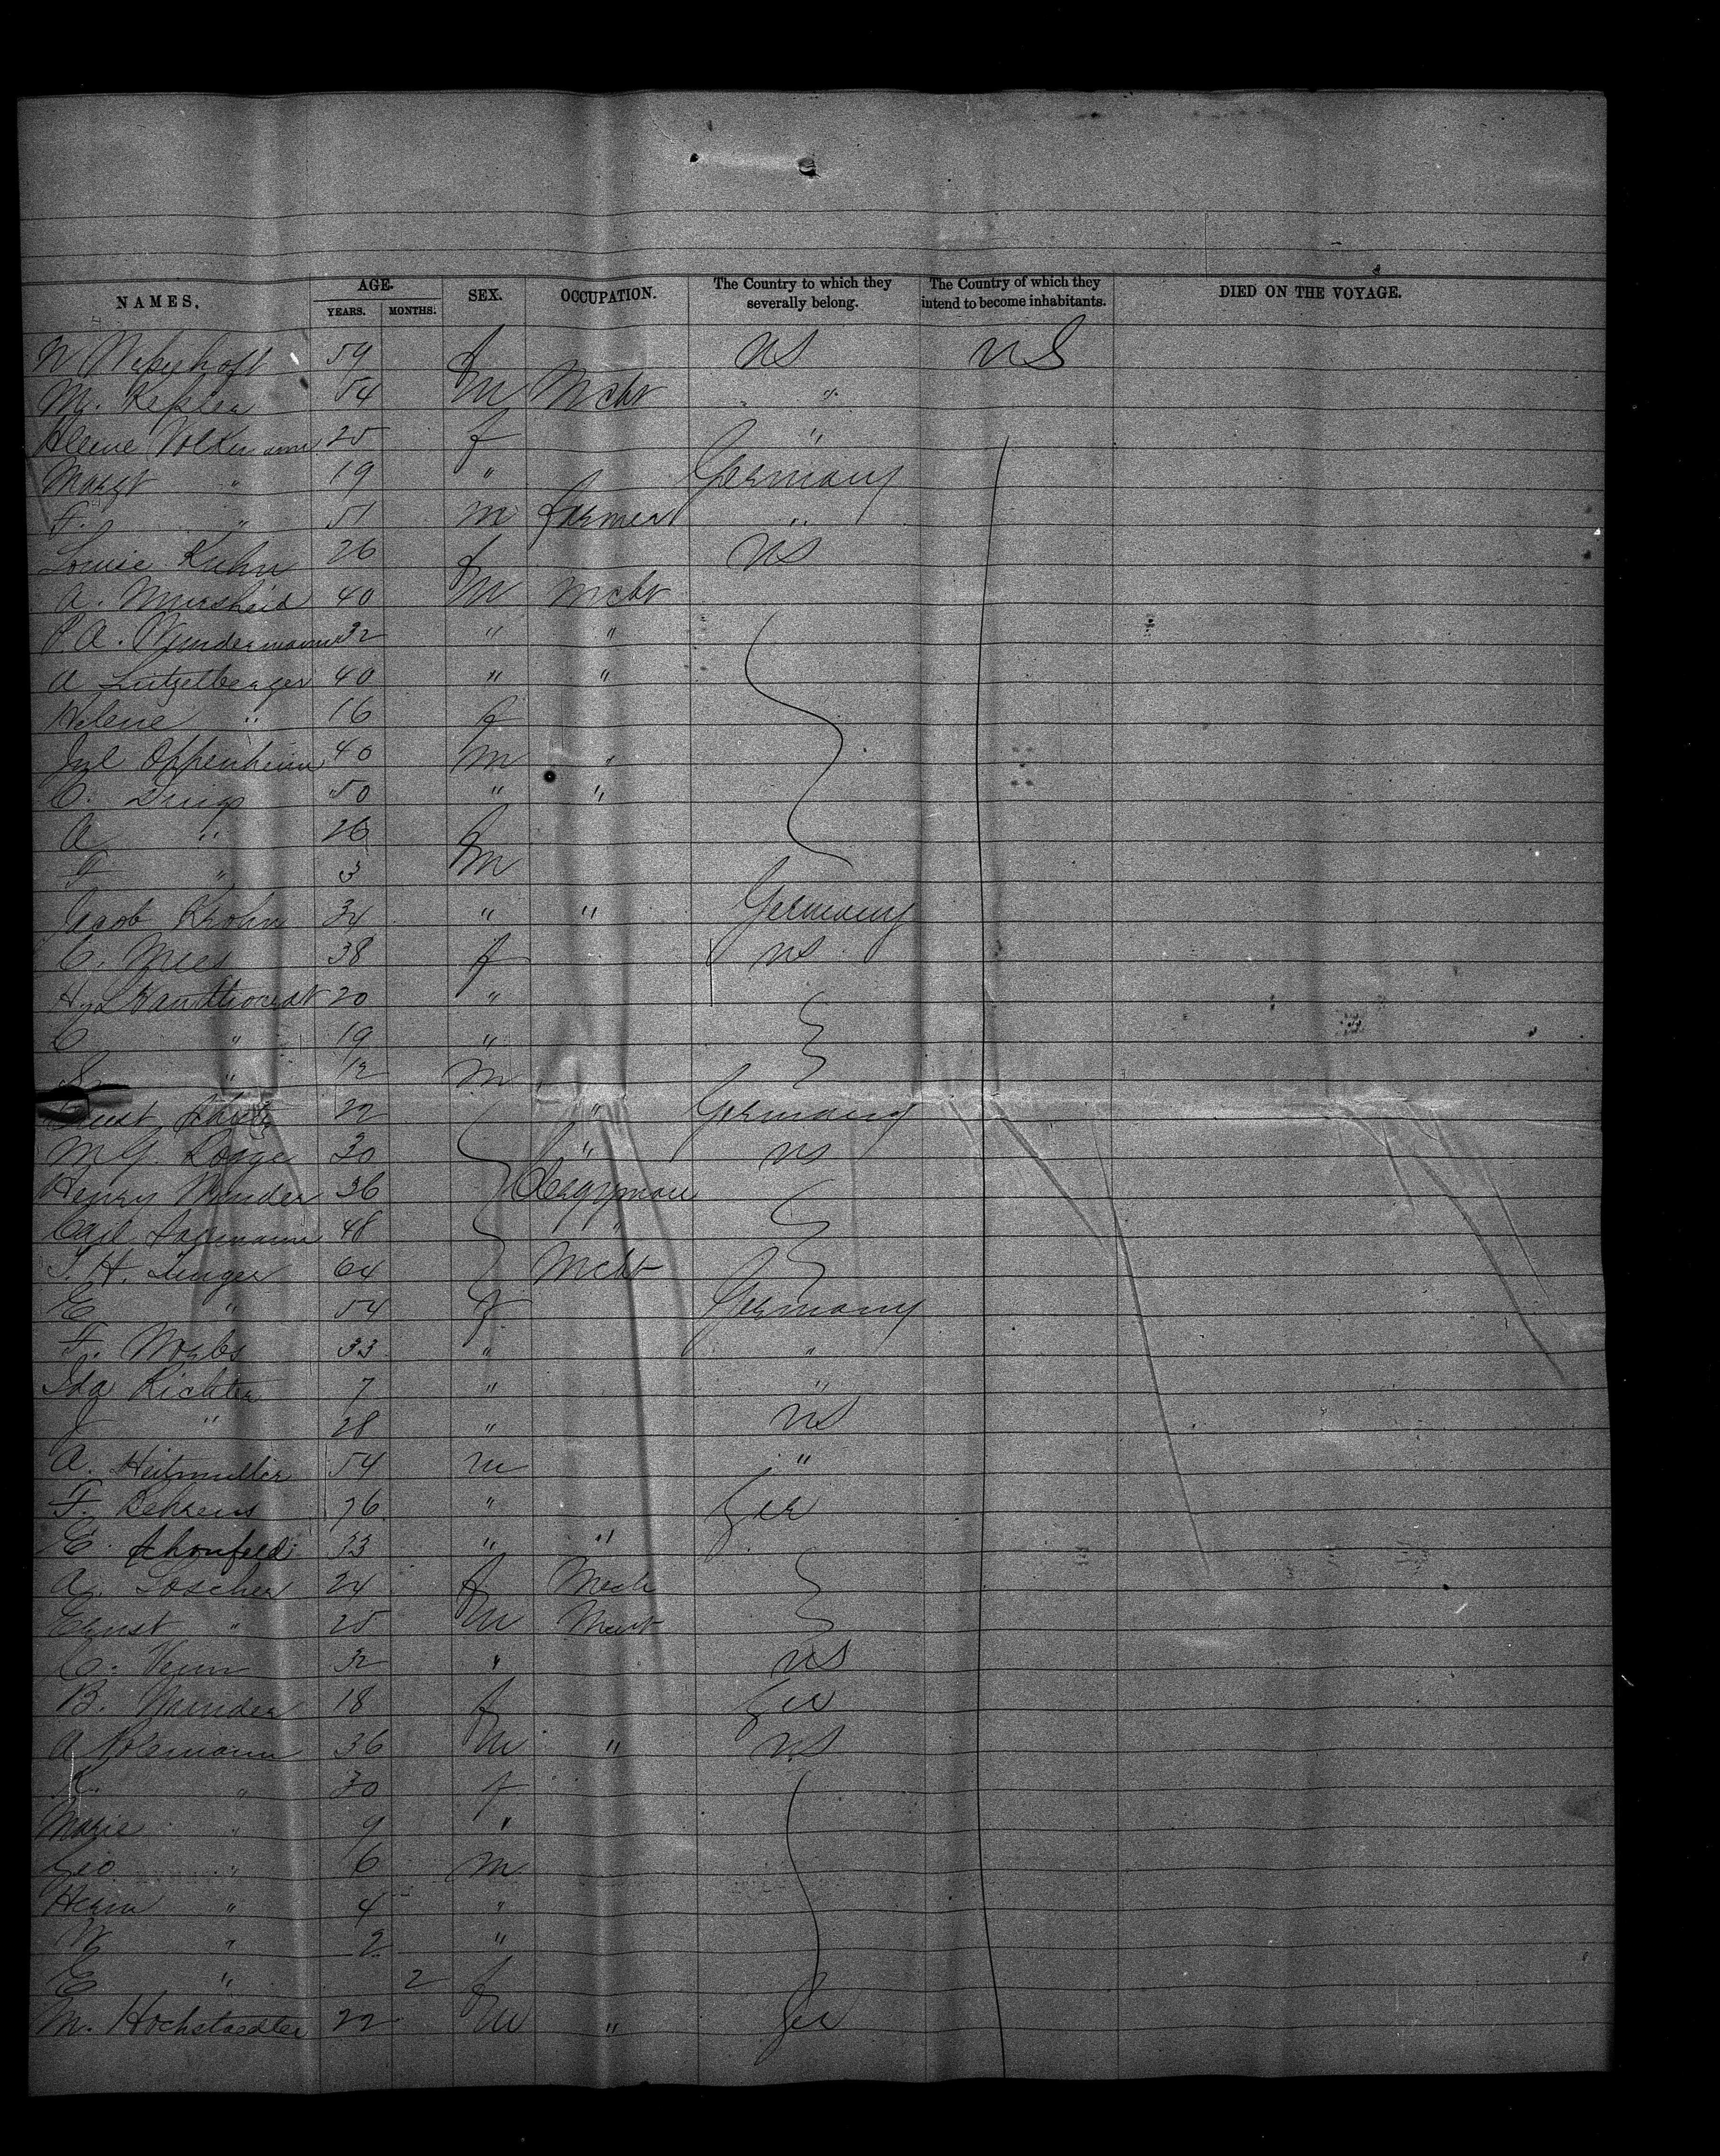 NAMES. AGE. YEARS. MONTHS. SEX. OCCUPATION. The Country to which they severally belong. The Country of which they intend to become inhabitants. DIED ON THE VOYAGE.
W 59 f US US
M. Kepler 54 m Mcht "
Helene Volkmann 25 f "
Margt " 19 " Germany
F. " 51 m farmer "
Louise Kuhn 26 f US
A. 40 m Mcht
P. A. 32 " "
A Lutzelberger 40 " "
Helene " 16 f
Jul Oppenheim 40 m "
C. 50 " "
A " 26 f
F " 3 m
Jacob Krohn 34 " " Germany
C. 38 f US
20 "
C " 19 "
S " 1/2 m
Ernst 22 " Germany
M G. Rogge 30 " US
Henry 36 Clergyman
Carl 48 "
J. H. 64 Mcht
E " 54 f Germany
F. 33 " "
Ida Richter 7 " "
J " 28 " US
A. Heitmuller 54 m "
F. Behrens 76 " Ger
E. Schonfeld 33 " "
A. Loscher 24 f Mech
Ernst " 25 m Mcht
C. 32 " US
B. 18 f Ger
A 36 m " US
K. " 30 f
Marie " 9 "
Geo " 6 m
Herm " 4 "
W " 2 "
E " 2 f
M. Hochstaedter 22 m " Ger